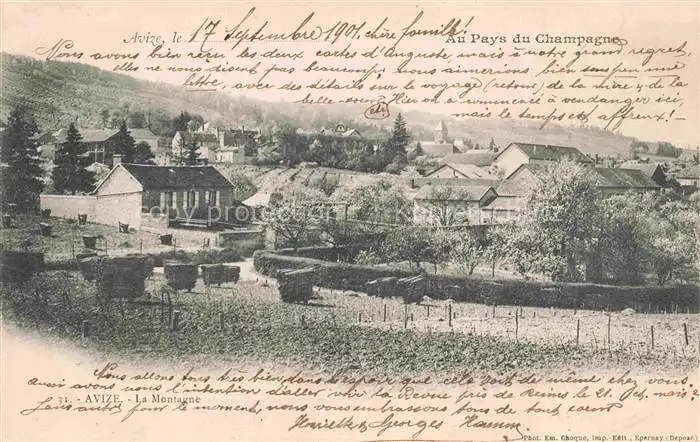 Avize, le 17 Septembre 1901, chère famille!
Au Pays du Champagne.
Nous avons bien reçu les deux cartes d'Auguste, mais à notre grand regret
elles ne nous disent pas beaucoup; nous aimerions bien une
lettre, avec des détails sur le voyage (retour) de la mère & de la
belle-sœur. Hier on a commencé à vendanger ici,
mais le temps est affreux!
Nous allons tous très bien, dans l'espoir que cela soit de même chez vous.
nous avons l'intention d'aller voir la Revue près de Reims le 21 mais
31. - AVIZE. - La Montagne
Sans autre pour le moment, nous vous embrassons tous de tout cœur
& Georges Hamm
Phot. Em. Choque, Imp.-Edit., Epernay (Déposé)